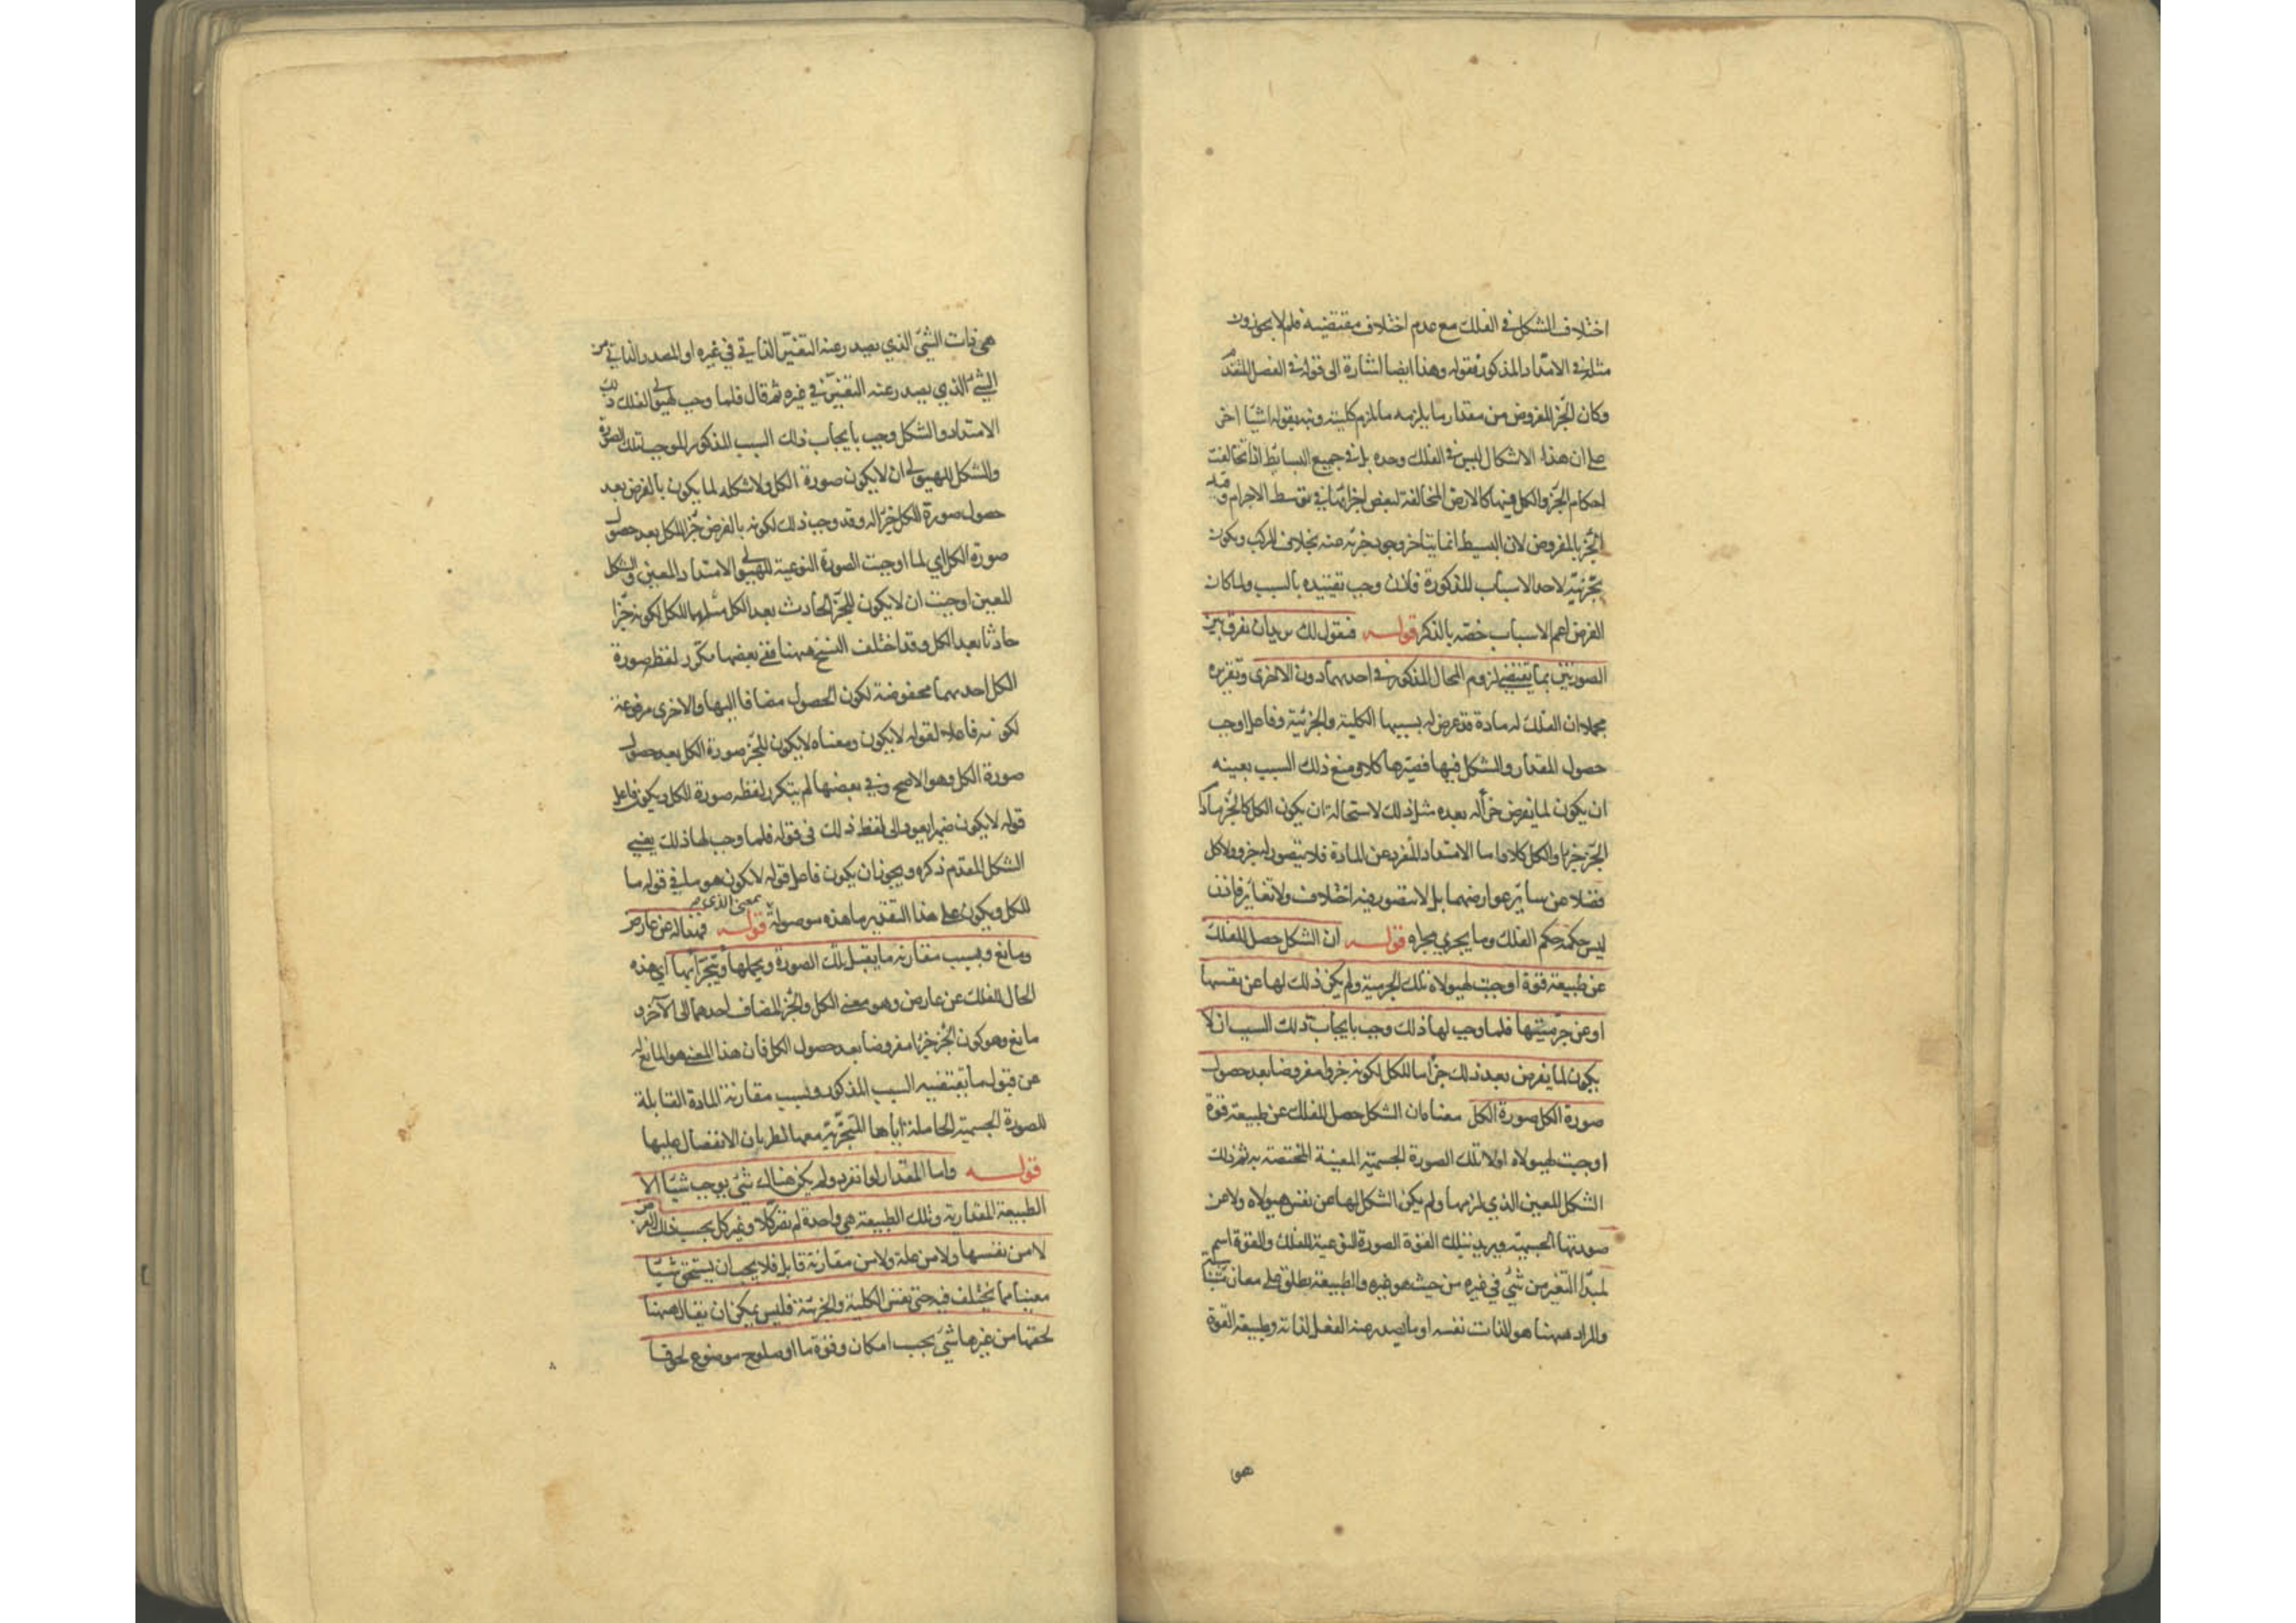 اختلاف الشكل في الفلك مع عدم اختلاف مقتضيه فلم لا يجوزون
مثله في الامتداد المذكور فقوله وهذا ايضا اشارة الى قوله في الفصل المتقدم
وكان الجزء المفروض من مقدار ما يلزمه ما يلزم كليته ونبه بقوله اشيا اخر
على ان هذا الاشكال ليس في الفلك وحده بل في جميع البسائط اذا تخالفت
احكام الجزء والكل فيها كالارض المخالفة لبعض اجزائها في توسط الاجرام وقيد
الجزء بالمفروض لان البسيط انما يتاخر وجود جزئه عنه بخلاف المركب ويكون
تجزئته لاحد الاسباب المذكورة فاذن وجب تقييده بالسبب ولما كان
الفرض اعم الاسباب خصه بالذكر قوله فنقول لك يريد ان يفرق بين
الصورتين بما يقتضي لزوم المحال المذكور في احدهما دون الاخرى وتقريره
مجملا ان الفلك له مادة قد عرض له بسببها الكلية والجزئية وفاعل اوجب
حصول المقدار والشكل فيها فصيرها كلا ومنع ذلك السبب بعينه
ان يكون لما يفرض جزأ له بعده مثل ذلك لاستحالة ان يكون الكل كالجزء ما دام
الجزء جزءا والكل كلا واما الامتداد المنفرد عن المادة فلا يتصور له جزء ولا كل
فضلا عن سائر عوارضهما بل لا يتصور فيه اختلاف ولا تغاير فاذن
ليس حكمه حكم الفلك وما يجري مجراه قوله ان الشكل حصل للفلك
عن طبيعة قوة اوجبت لهيولاه تلك الجرمية ولم يكن ذلك لها عن نفسها
او عن جرميتها فلما وجب لها ذلك وجب بايجاب ذلك السبب ان لا
يكون لما يفرض بعد ذلك جزأ ما للكل لكونه جزءا مفروضا بعد حصول
صورة الكل صورة الكل معناه ان الشكل حصل للفلك عن طبيعة قوة
اوجبت لهيولاه اولا تلك الصورة الجسمية المعينة المختصة به ثم ذلك
الشكل المعين الذي لزمها ولم يكن الشكل لها عن نفس هيولاه ولا من
صورتها الجسمية ويريد بتلك القوة الصورة النوعية للفلك والقوة اسم
لمبدا التغير من شيء في غيره من حيث هو غيره والطبيعة يطلق على معان
والمراد ههنا هو الذات نفسه او ما يصدر عنه الفعل لذاته وطبيعة القوة
هي
هي ذات الشيء الذي يصدر عنه التغير الذاتي في غيره او المصدر الذاتي من
الشيء الذي يصدر عنه التغير في غيره ثم قال فلما وجب لهيولى الفلك ذلك
الامتداد والشكل وجب بايجاب ذلك السبب المذكور الموجب تلك الصورة
والشكل للهيولى ان لا يكون صورة الكل ولا شكله لما يكون بالفرض بعد
حصول صورة الكل جزءا له وقد وجب ذلك لكونه بالفرض جزء الكل بعد حصول
صورة الكل اي لما اوجبت الصورة النوعية للهيولى الامتداد المعين والشكل
المعين اوجبت ان لا يكون للجزء الحادث بعد الكل مثلهما للكل لكونه جزءا
حادثا بعد الكل وقد اختلف النسخ ههنا ففي بعضها مكرر لفظ صورة
الكل احدهما مخفوضة لكون الحصول مضافا اليها والاخرى مرفوعة
لكونه فاعلا لقوله لا يكون ومعناه لا يكون للجزء صورة الكل بعد حصول
صورة الكل وهو الاصح وفي بعضها لم يتكرر لفظه صورة الكل ويكون فاعل
قوله لا يكون ضميرا يعود الى لفظ ذلك في قوله فلما وجب لها ذلك يعني
الشكل المقدم ذكره ويجوز ان يكون فاعل قوله لا يكون هو ما في قوله ما
بمعنى الذي
للكل ويكون على هذا التقدير ما هذه موصولة قوله فهناك عن عارض
ومانع وبسبب مقارنة ما يقبل تلك الصورة ويحملها ويتجزا بها اي هذه
الحال للفلك عن عارض وهو معنى الكل والجزء المضاف احدهما الى الاخر و
مانع وهو كون الجزء جزءا مفروضا بعد حصول الكل فان هذا المعنى هو المانع له
عن قبول ما يقتضيه السبب المذكور وبسبب مقارنة المادة القابلة
للصورة الجسمية الحاملة اياها المتجزئة معها لطريان الانفصال عليها
قوله واما المقدار لو انفرد ولم يكن هناك شيء يوجب شيئا الا
الطبيعة المقدارية وتلك الطبيعة هي واحدة لم تصر كلا وغير كل بحسب ذلك الفرض
لا من نفسها ولا من علة ولا من مقارنة قابل فلا يجب ان يستحق شيئا
معينا مما يختلف فيه حتى نفس الكلية والجزئية فليس يمكن ان يقال ههنا
لحقها من غيرها شيء بحسب امكان وقوة ما او صلوح موضوع لحوقا